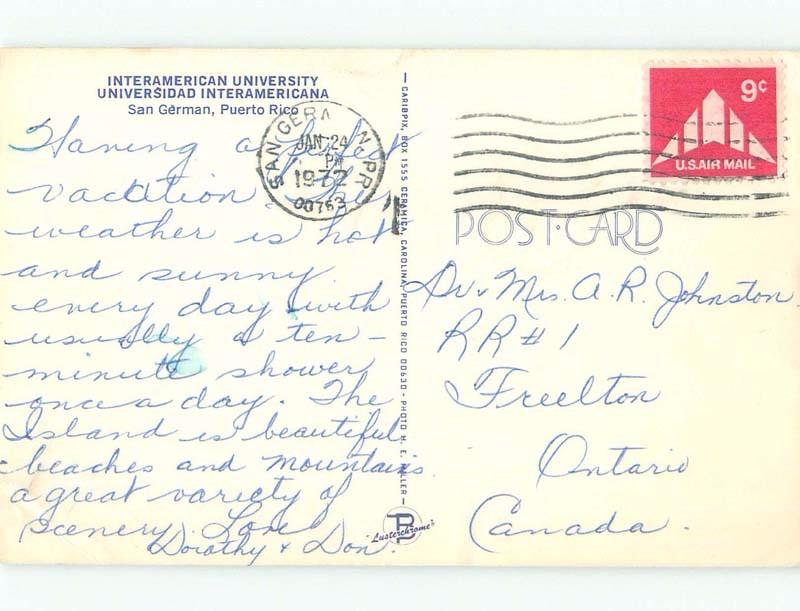 INTERAMERICAN UNIVERSITY
UNIVERSIDAD INTERAMERICANA
San Germán, Puerto Rico
Having a
vacation.
weather is hot
and sunny
every day with
usually a ten-
minute shower
once a day. The
Island is beautiful
beaches and mountains
a great variety of
scenery. Love
Dorothy & Don.
SAN GERMAN PR
JAN 24
PM
1972
00753
— CARIBPIX, BOX 1555 CERAMICA, CAROLINA, PUERTO RICO 00630 - PHOTO H. E. MILLER —
"Lusterchrome"
9¢
U.S. AIR MAIL
POST·CARD
Dr. & Mrs. A. R. Johnston
RR # 1
Freelton
Ontario
Canada.